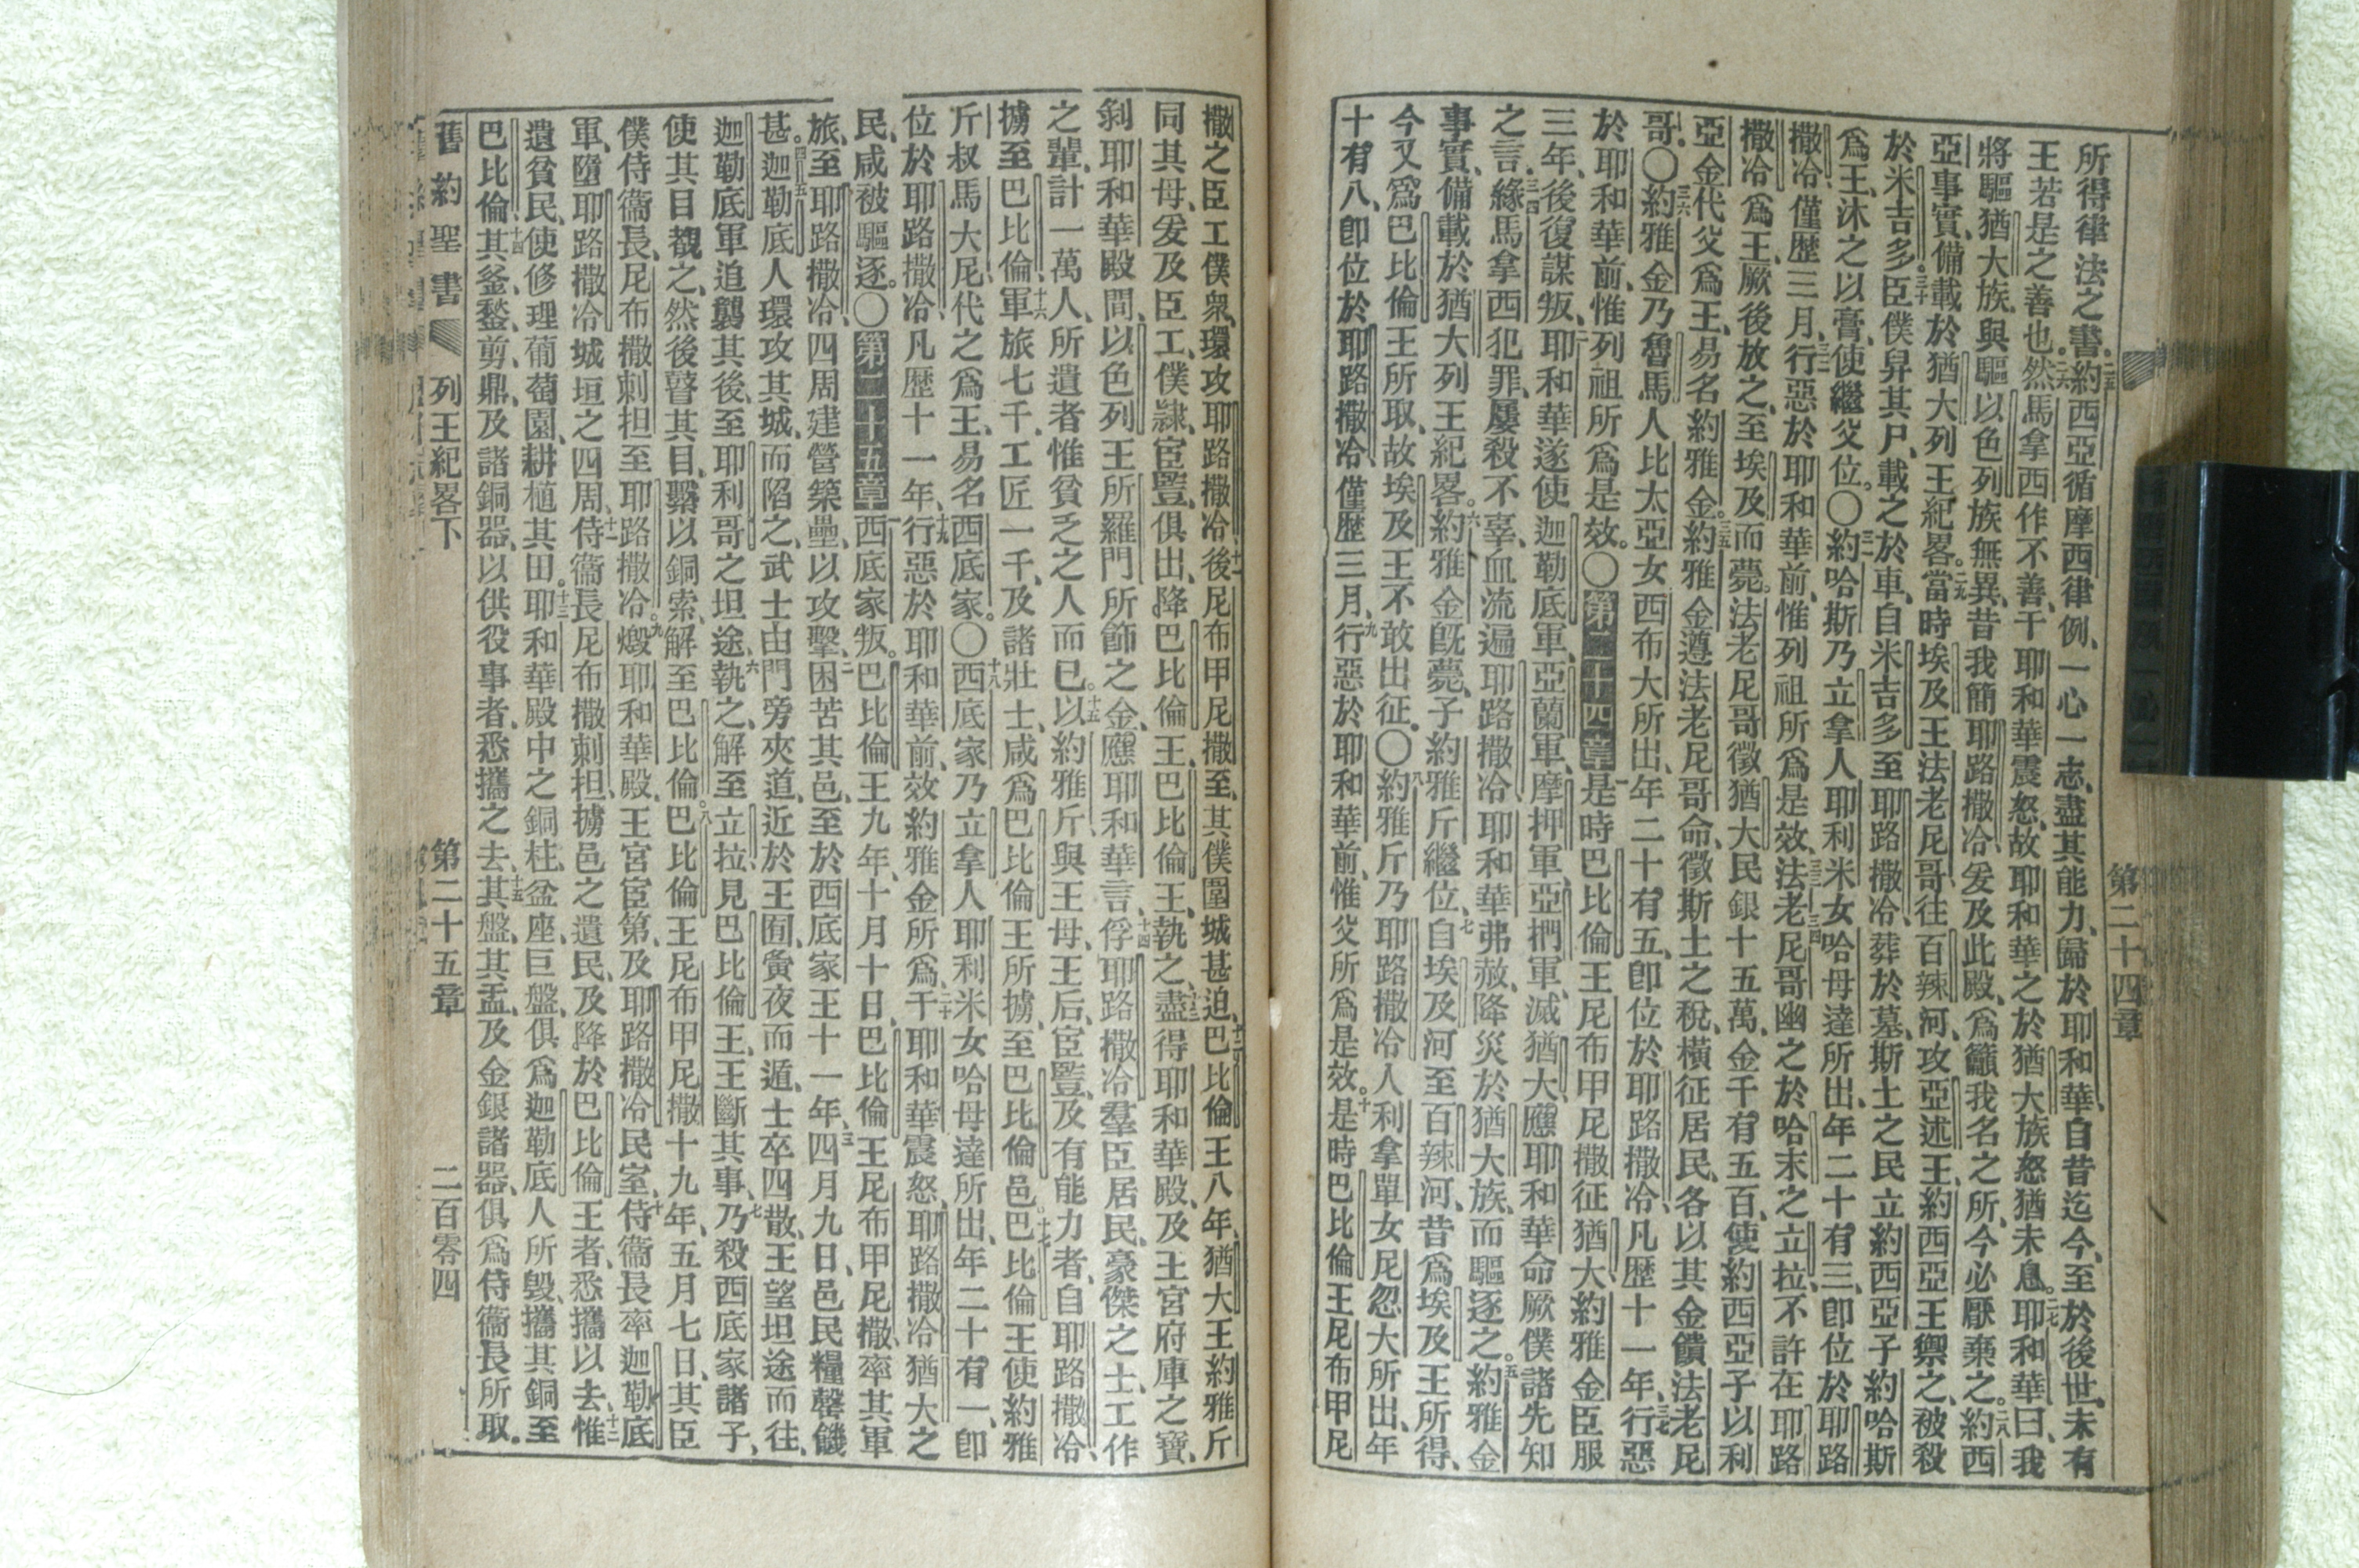 所得律法之書、二五約西亞循摩西律例、一心一志、盡其能力、歸於耶和華、自昔迄今、至於後世、未有
王若是之善也、二六然馬拿西作不善、干耶和華震怒、故耶和華之於猶大族怒猶未息。二七耶和華曰、我
將驅猶大族、與驅以色列族無異、昔我簡耶路撒冷、爰及此殿、爲籲我名之所、今必厭棄之。二八約西
亞事實、備載於猶大列王紀畧。二九當時埃及王法老尼哥往百辣河、攻亞述王、約西亞王禦之、被殺
於米吉多。三十臣僕舁其尸、載之於車、自米吉多至耶路撒冷、葬於墓、斯土之民立約西亞子約哈斯
爲王、沐之以膏、使繼父位。〇三一約哈斯乃立拿人耶利米女哈母達所出、年二十有三、卽位於耶路
撒冷、僅歷三月、三二行惡於耶和華前、惟列祖所爲是效、三三法老尼哥幽之於哈末之立拉、不許在耶路
撒冷爲王、厥後放之、至埃及而薨。法老尼哥徵猶大民銀十五萬、金千有五百、三四使約西亞子以利
亞金代父爲王、易名約雅金。三五約雅金遵法老尼哥命、徵斯土之稅、橫征居民、各以其金饋法老尼
哥。〇三六約雅金乃魯馬人比太亞女西布大所出、年二十有五、卽位於耶路撒冷、凡歷十一年、三七行惡
於耶和華前、惟列祖所爲是效。〇第二十四章一是時巴比倫王尼布甲尼撒征猶大、約雅金臣服
三年、後復謀叛、二耶和華遂使迦勒底軍、亞蘭軍、摩押軍、亞捫軍、滅猶大、應耶和華命厥僕諸先知
之言、三四緣馬拿西犯罪、屢殺不辜、血流遍耶路撒冷、耶和華弗赦、降災於猶大族、而驅逐之。五約雅金
事實、備載於猶大列王紀畧。六約雅金旣薨、子約雅斤繼位、七自埃及河至百辣河、昔爲埃及王所得、
今又爲巴比倫王所取、故埃及王不敢出征。〇八約雅斤乃耶路撒冷人利拿單女尼忽大所出、年
十有八、卽位於耶路撒冷、僅歷三月、九行惡於耶和華前、惟父所爲是效。十是時巴比倫王尼布甲尼
第二十四章
撒之臣工僕衆、環攻耶路撒冷、十一後尼布甲尼撒至、其僕圍城甚迫、十二巴比倫王八年、猶大王約雅斤
同其母、爰及臣工、僕隸、宦豎、俱出、降巴比倫王、巴比倫王執之、十三盡得耶和華殿、及王宮府庫之寶、
剁耶和華殿間、以色列王所羅門所飾之金、應耶和華言、十四俘耶路撒冷羣臣居民、豪傑之士、工作
之輩、計一萬人、所遺者惟貧乏之人而已。十五以約雅斤與王母、王后、宦豎、及有能力者、自耶路撒冷、
擄至巴比倫、十六軍旅七千、工匠一千、及諸壯士、咸爲巴比倫王所擄、至巴比倫邑。十七巴比倫王使約雅
斤叔馬大尼代之爲王、易名西底家。〇十八西底家乃立拿人耶利米女哈母達所出、年二十有一、卽
位於耶路撒冷、凡歷十一年、十九行惡於耶和華前、效約雅金所爲、二十干耶和華震怒、耶路撒冷猶大之
民、咸被驅逐。〇第二十五章一西底家叛。巴比倫王九年、十月十日、巴比倫王尼布甲尼撒、率其軍
旅、至耶路撒冷、四周建營築壘、以攻擊、二困苦其邑、至於西底家王十一年、三四月九日、邑民糧罄饑
甚。四五迦勒底人環攻其城、而陷之、武士由門旁夾道、近於王囿、夤夜而遁、士卒四散、王望坦途而往、
迦勒底軍追襲其後、至耶利哥之坦途、六執之、解至立拉、見巴比倫王、王斷其事、七乃殺西底家諸子、
使其目覩之、然後瞽其目、繫以銅索、解至巴比倫。八巴比倫王尼布甲尼撒十九年、五月七日、其臣
僕侍衞長、尼布撒剌担至耶路撒冷。九燬耶和華殿、王宮宦第、及耶路撒冷民室、十侍衞長率迦勒底
軍、墮耶路撒冷城垣之四周、十一侍衞長尼布撒剌担、擄邑之遺民、及降於巴比倫王者、悉攜以去、十二惟
遺貧民、使修理葡萄園、耕植其田。十三耶和華殿中之銅柱、盆座、巨盤、俱爲迦勒底人所毀、攜其銅至
巴比倫、十四其釜、鍫、剪、鼎、及諸銅器、以供役事者、悉攜之去、十五其盤、其盂、及金銀諸器、俱爲侍衞長所取。
舊約聖書 列王紀畧下 第二十五章 二百零四